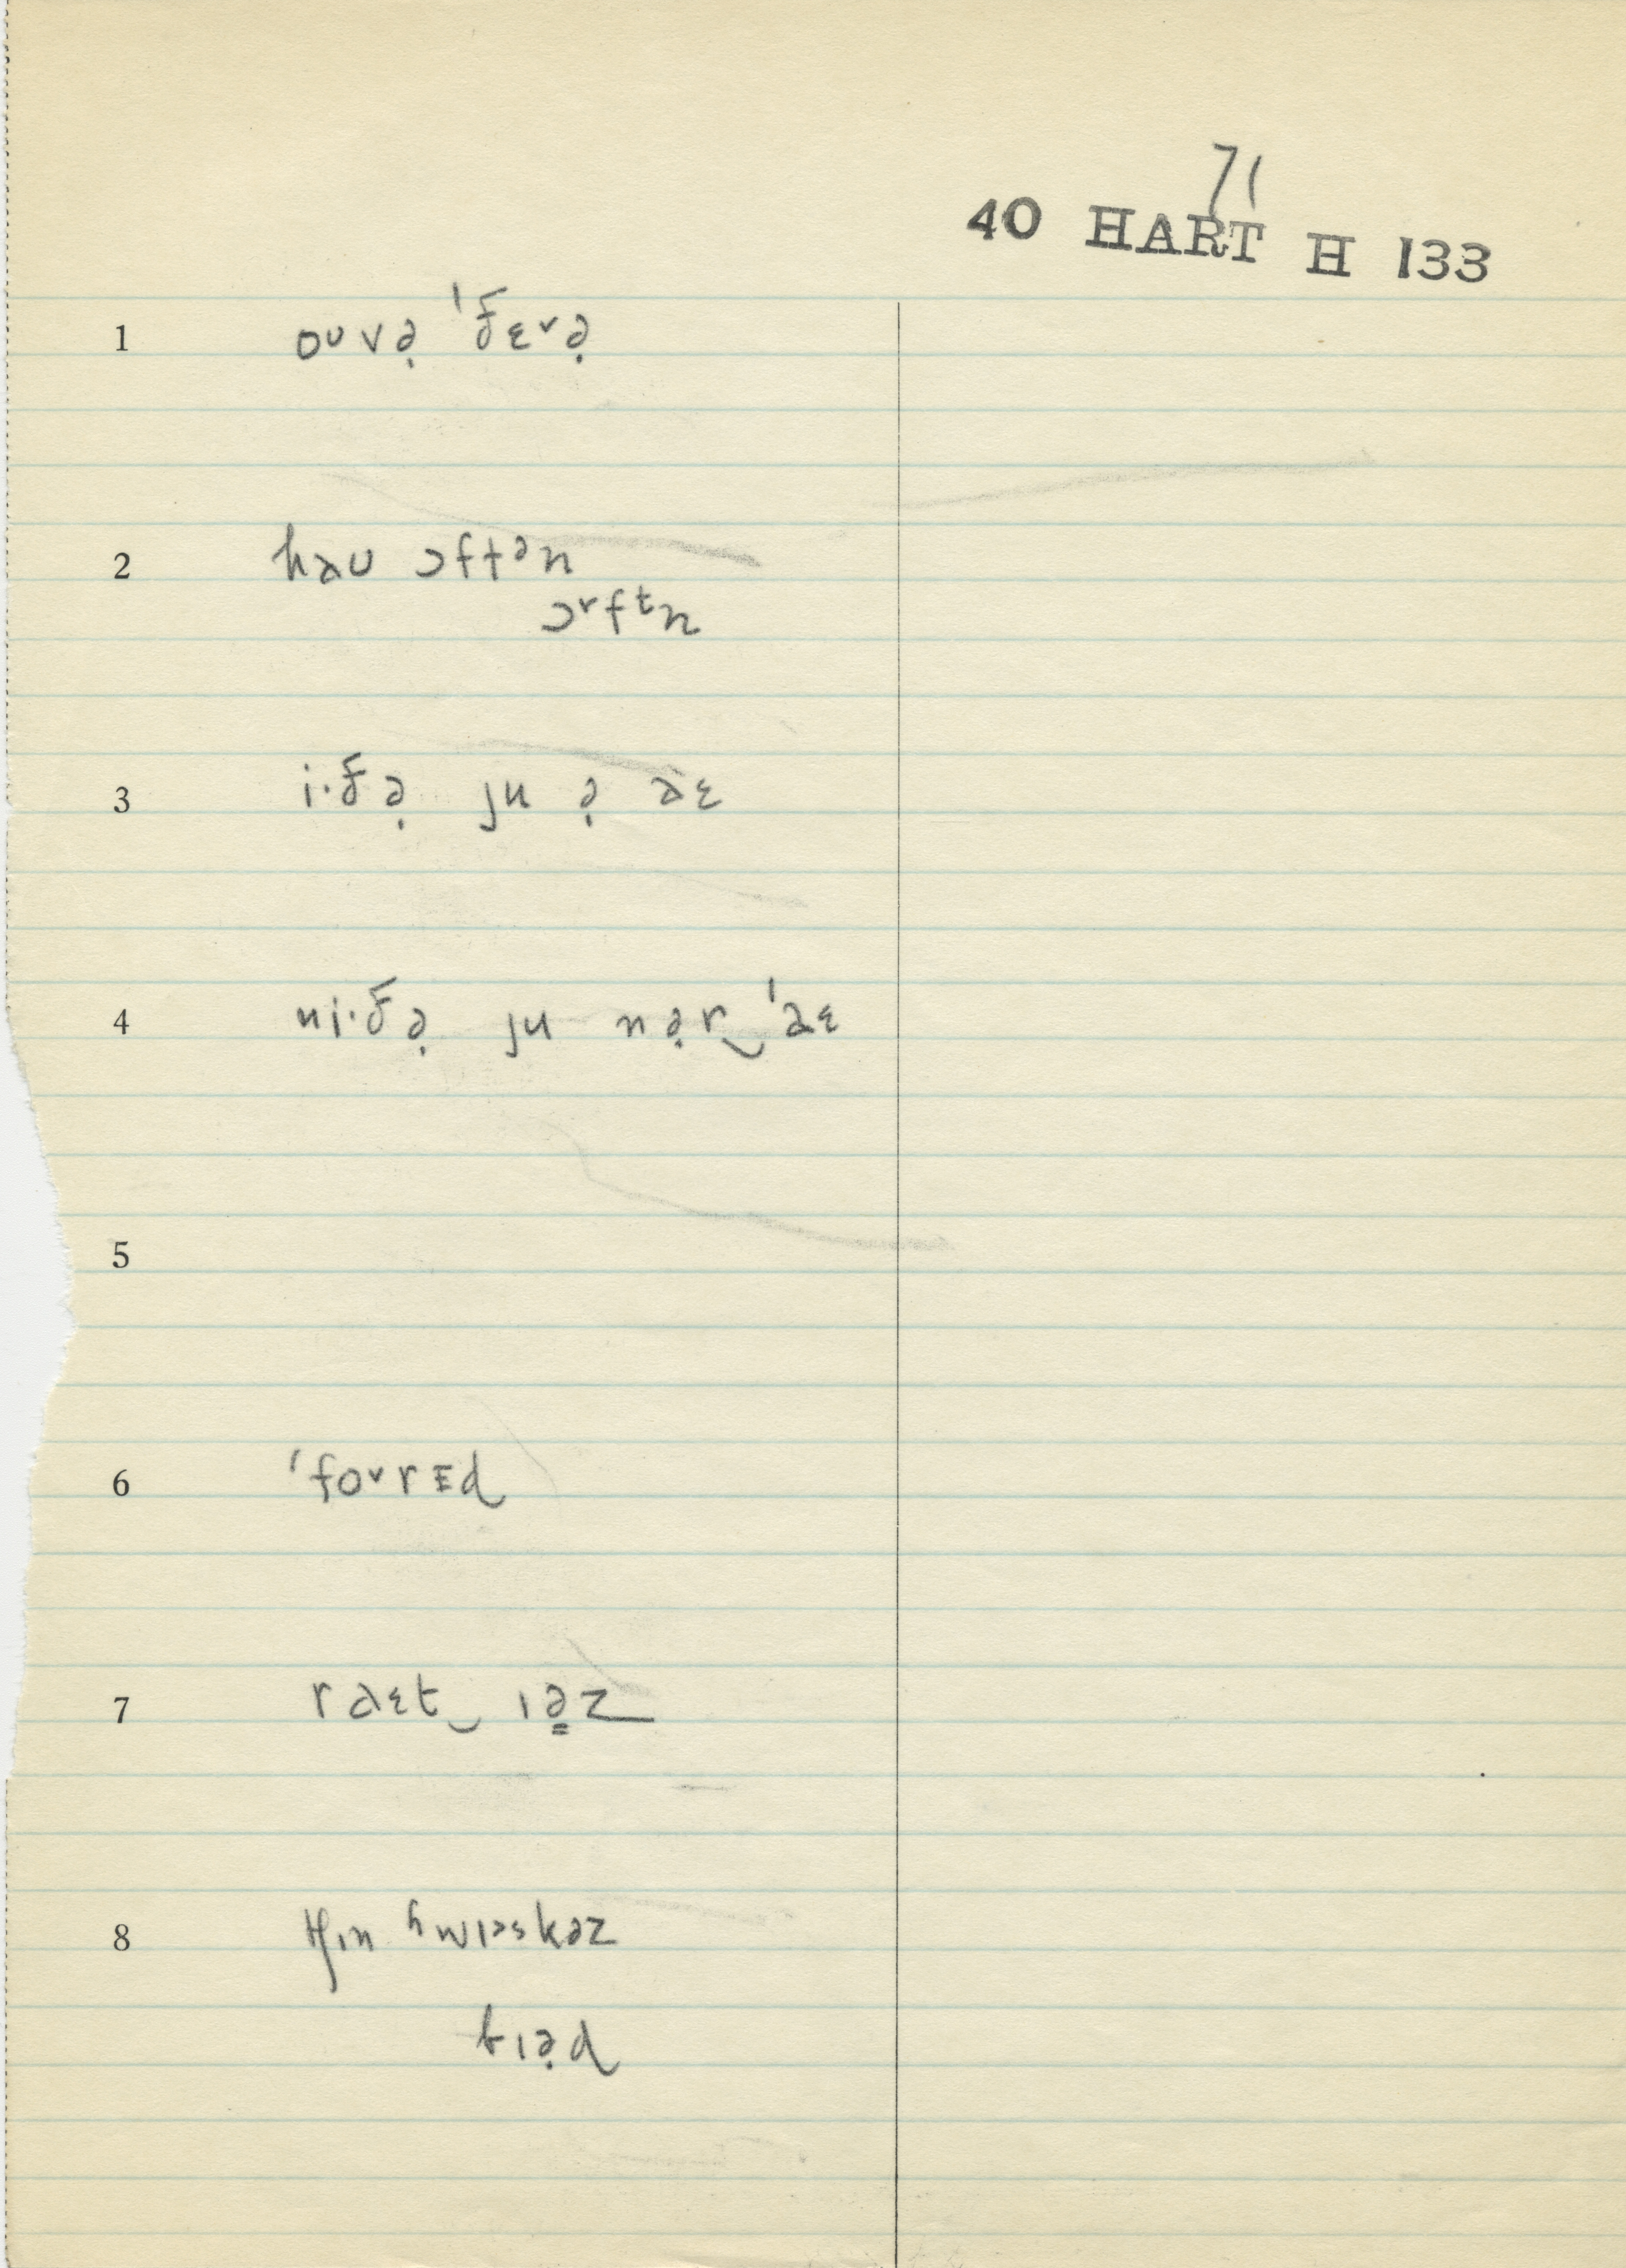 71
40 HART H 133
1 oᴜvə̣ ˈðɛ˅ə̣
2 haᴜ ɔftᵊn
ɔ˅fᵗn
3 i·ðə̣ ju ə̣ aɛ
4 ni·ðə̣ ju nə̣r‿ˈaɛ
5
6 ˈfo˅rɪd
7 raɛt‿ɪə̣z
8 tʃɪn ʰwɪəskəz
bɪə̣d